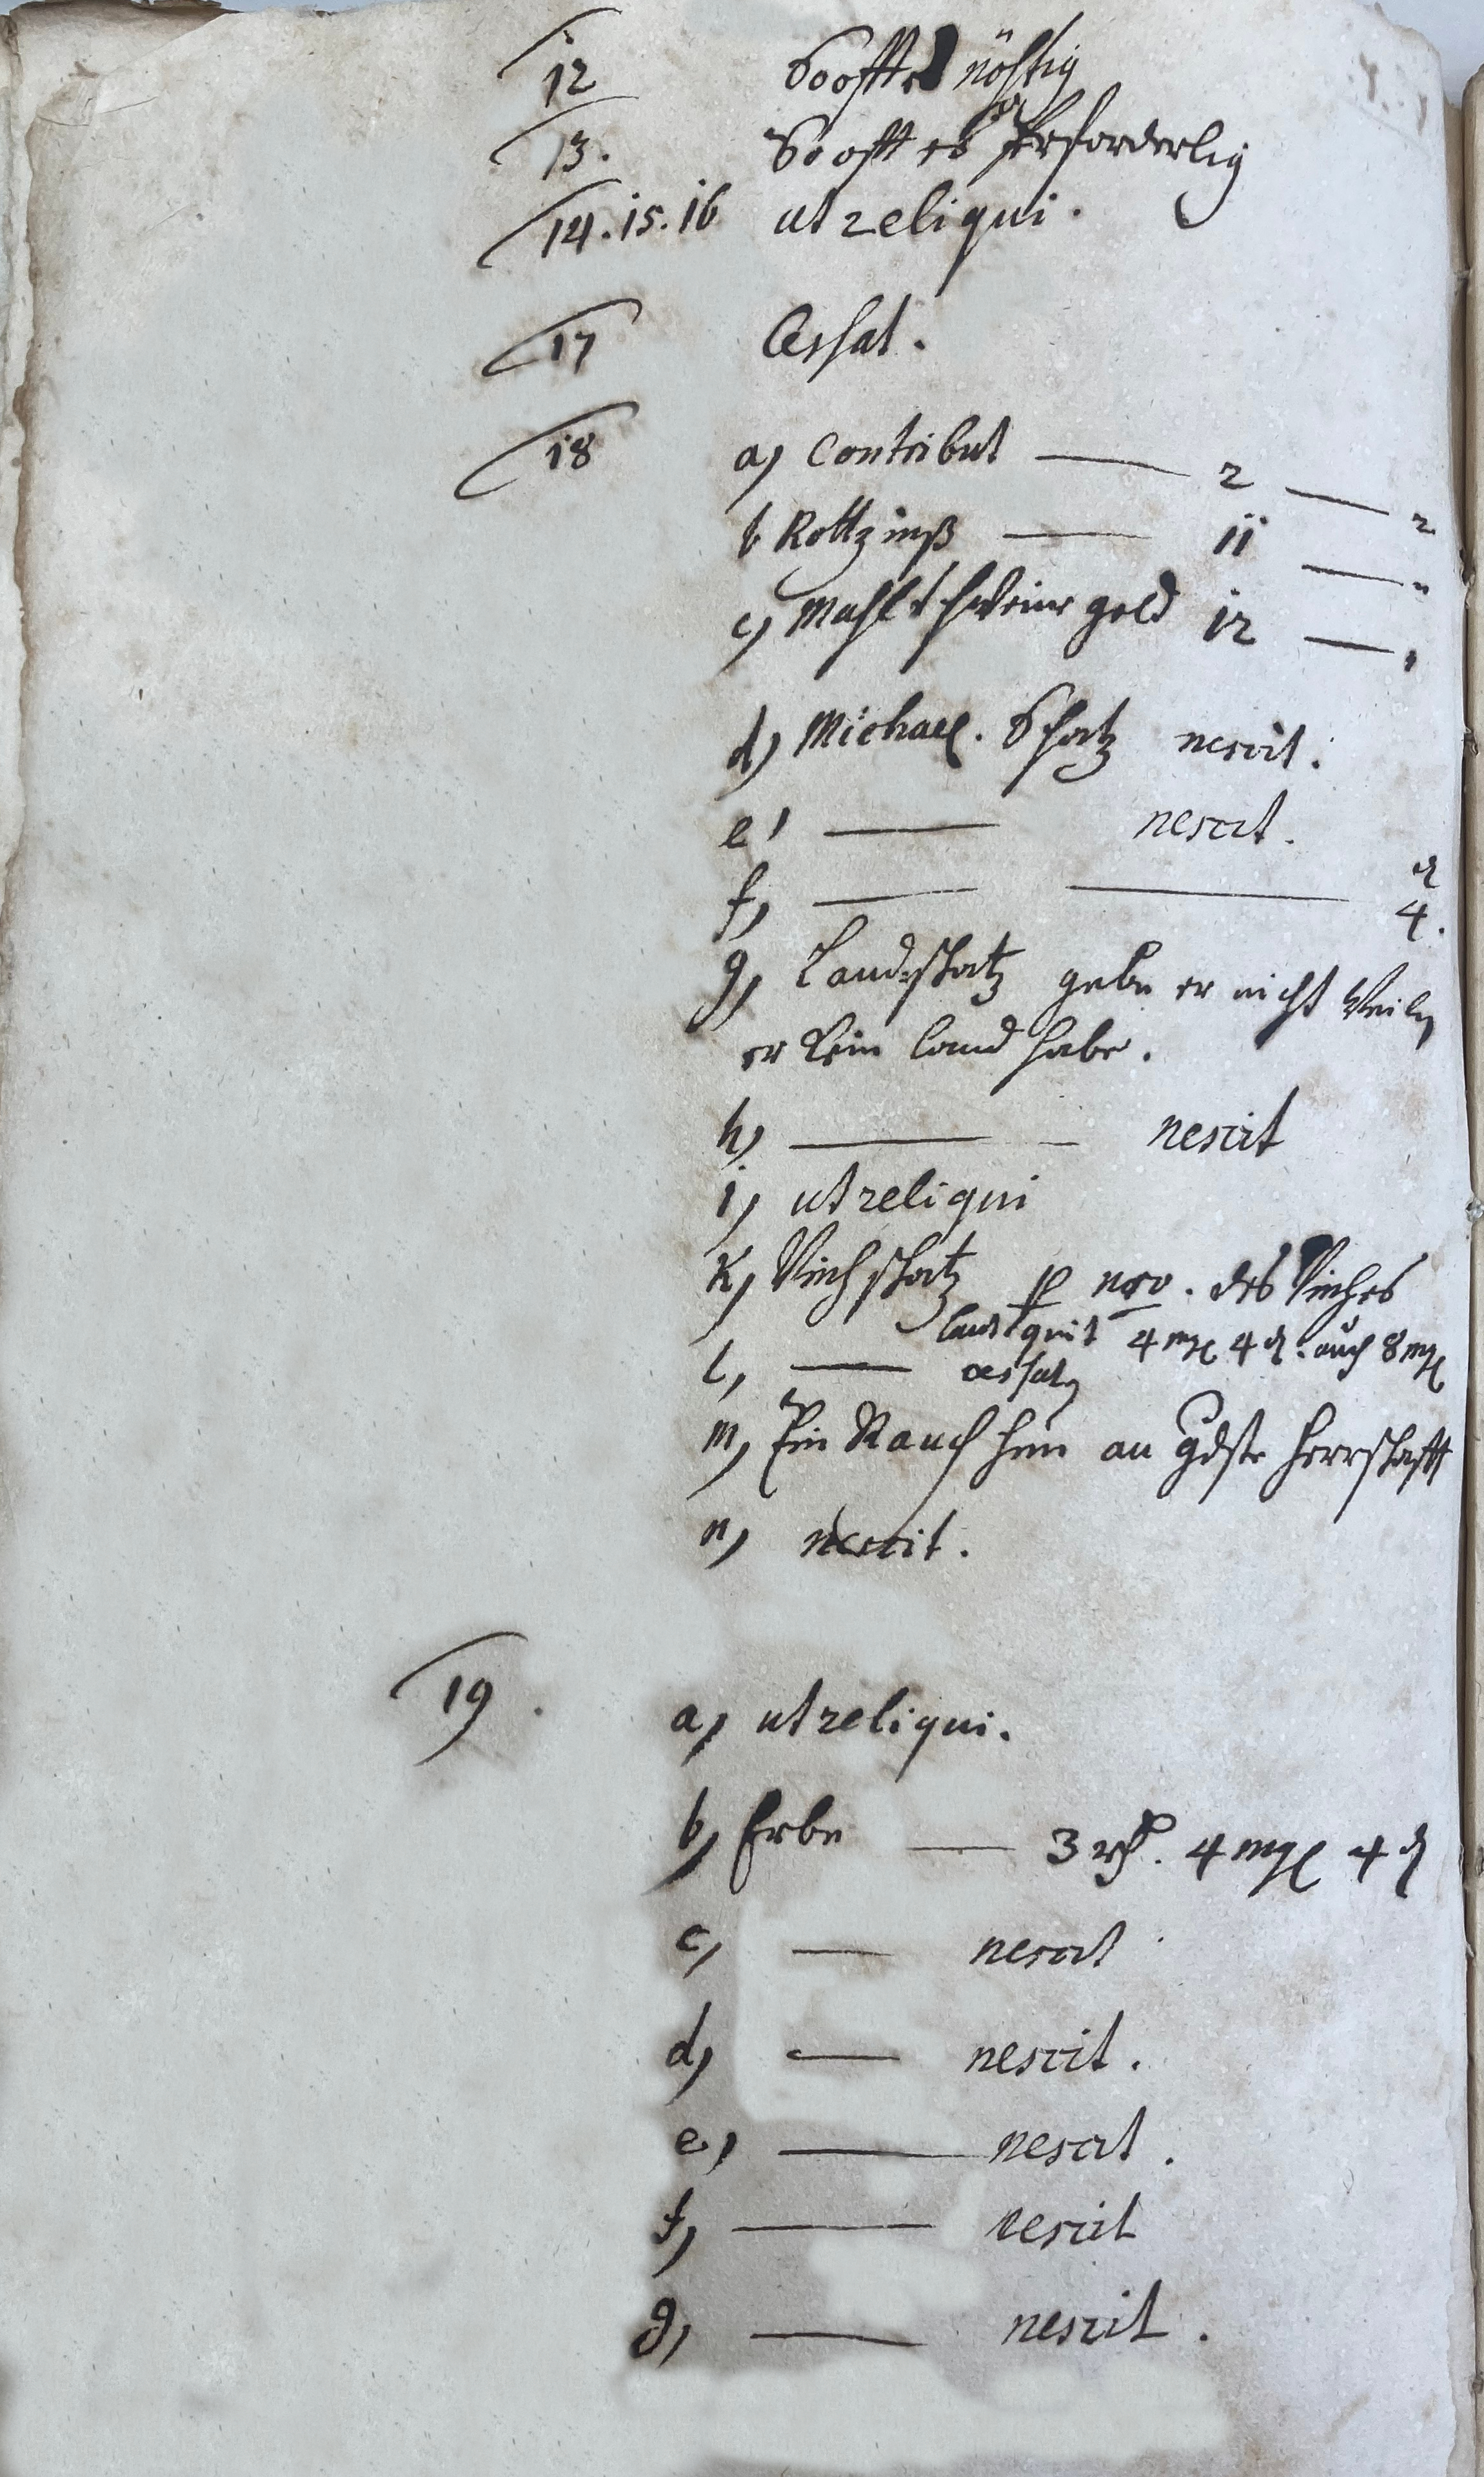 12 Soofft nöhtig
13. So offt es Erforderlig
14. 15. 16 ut reliqui.
17 Cessat.
18 a) Contribut — 2 — 2
b Rottzinß — 11 — "
c) Mahlschweine geld 12 — "
d) Michael. Schatz nescit.
e) — nescit.
f) — — 4.
g) Landschatz gebe er nicht weiln
er kein land habe.
h) — nescit
i) ut reliqui
k) Viehschatz p nro. des Viehes
laut quit 4 mgl 4 d. auch 8 mgl
l) — cessat
m) Ein Rauch hun an gdste Herrschafft
n) nescit.
19. a) ut reliqui.
b) Erbe — 3 rthl. 4 mgl 4 d
c) — nescit
d) — nescit.
e) — nescit.
f) — nescit
g) — nescit.